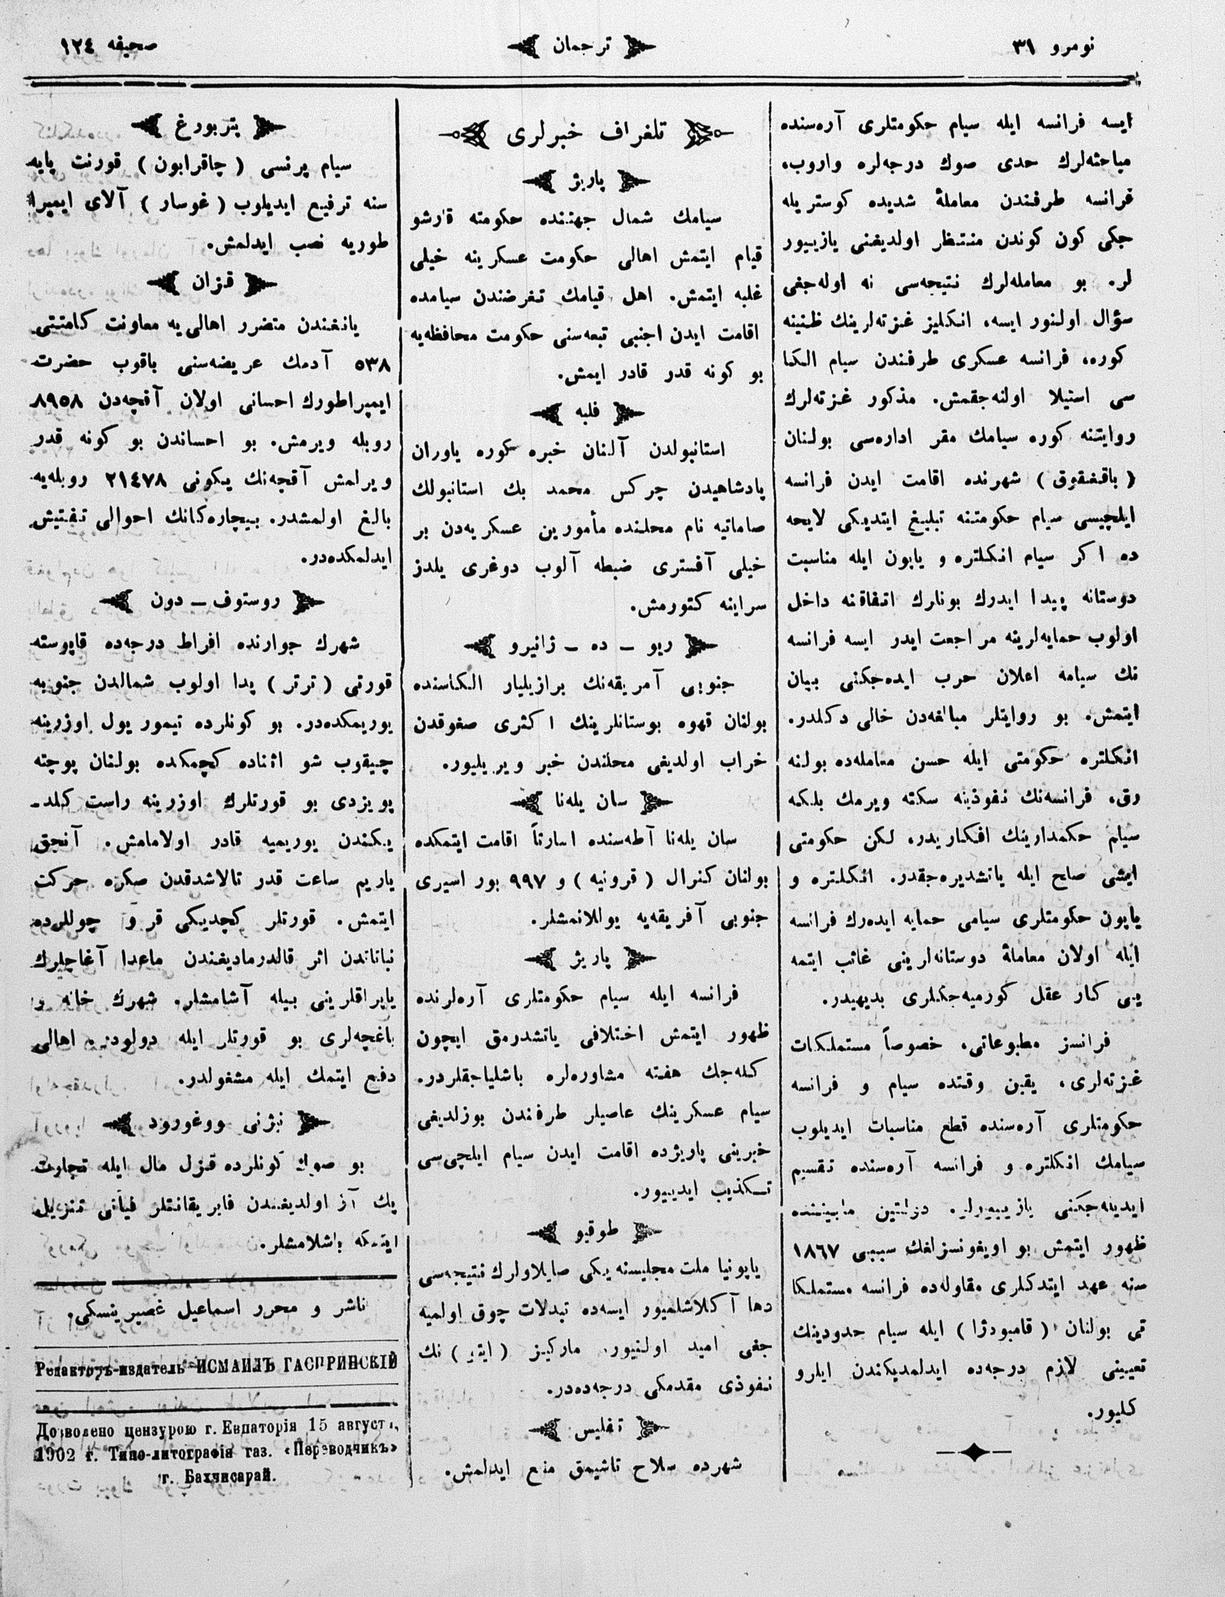 نومرو ٣١
ترجمان
صحیفه ١٢٤
ایسه فرانسه ایله سیام حکومتلری آره‌سنده
مباحثه‌لرك حدی صوك درجه‌لره واروب،
فرانسه طرفندن معاملهٔ شدیده کوستریله
جکی کون کوندن منتظر اولدیغنی یازیییور
لر. بو معامله‌لرك نتیجه‌سی نه اوله‌جغی
سؤال اولنور ایسه، انکلیز غزته‌لرینك ظنینه
کوره، فرانسه عسکری طرفندن سیام الکا
سی استیلا اولنه‌جقمش. مذکور غزته‌لرك
روایتنه کوره سیامك مقر اداره‌سی بولنان
( باقنقوق ) شهرنده اقامت ایدن فرانسه
ایلچیسی سیام حکومتنه تبلیغ ایتدیکی لایحه
ده اکر سیام انکلتره و یاپون ایله مناسبت
دوستانه پیدا ایدرك بونلرك اتفاقنه داخل
اولوب حمایه‌لرینه مراجعت ایدر ایسه فرانسه
نك سیامه اعلان حرب ایده‌جکنی بیان
ایتمش. بو روایتلر مبالغه‌دن خالی دکلدر.
انکلتره حکومتی ایله حسن معامله‌ده بولنه
رق، فرانسه‌نك نفوذینه سکته ویرمك بلکه
سیام حکمدارینك افکاریدر، لکن حکومتی
ایشی صلح ایله یاتشدیره‌جقدر. انکلتره و
یاپون حکومتلری سیامی حمایه ایده‌رك فرانسه
ایله اولان معاملهٔ دوستانه‌لرینی غائب ایتمه
یی کار عقل کورمیه‌جکلری بدیهیدر.
فرانسز مطبوعاتی، خصوصاً مستملکات
غزته‌لری، یقین وقتده سیام و فرانسه
حکومتلری آره‌سنده قطع مناسبات ایدیلوب
سیامك انکلتره و فرانسه آره‌سنده تقسیم
ایدیله‌جکنی یازیییورلر. دولتین مابیننده
ظهور ایتمش بو اویغونسزلغك سببی ١٨٦٧
سنه عهد ایتدکلری مقاوله‌ده فرانسه مستملکا
تی بولنان ( قامبودژا ) ایله سیام حدودینك
تعیینی لازم درجه‌ده ایدلمدیکندن ایلرو
کلیور.
تلغراف خبرلری
پاریژ
سیامك شمال جهتنده حکومته قارشو
قیام ایتمش اهالی حکومت عسکرینه خیلی
غلبه ایتمش. اهل قیامك تعرضندن سیامده
اقامت ایدن اجنبی تبعه‌سنی حکومت محافظه‌یه
بو کونه قدر قادر ایمش.
فلبه
استانبولدن آلنان خبره کوره یاوران
پادشاهیدن چرکس محمد بك استانبولك
صاماتیه نام محلنده مأمورین عسکریه‌دن بر
خیلی آفستری ضبطه آلوب دوغری یلدز
سراینه کتورمش.
ریو ـ ده ـ ژانیرو
جنوبی آمریقه‌نك برازیلیار الکاسنده
بولنان قهوه بوستانلرینك اکثری صغوقدن
خراب اولدیغی محلندن خبر ویریلیور.
سان یله‌نا
سان یله‌نا آطه‌سنده اسارتاً اقامت ایتمکده
بولنان کنرال ( قرونیه ) و ٩٩٧ بور اسیری
جنوبی آفریقه‌یه یوللانمشلر.
پاریژ
فرانسه ایله سیام حکومتلری آره‌لرنده
ظهور ایتمش اختلافی یاتشدرمق ایچون
کله‌جك هفته مشاوره‌لره باشلیاجقلردر.
سیام عسکرینك عاصیلر طرفندن بوزلدیغی
خبرینی پاریژده اقامت ایدن سیام ایلچی‌سی
تکذیب ایدییور.
طوقیو
یاپونیا ملت مجلیسنه یکی صایلاولرك نتیجه‌سی
دها آکلاشلمیور ایسه‌ده تبدلات چوق اولمیه
جغی امید اولنیور. مارکیز ( ایتو ) نك
نفوذی مقدمکی درجه‌ده‌در.
تفلیس
شهرده سلاح تاشیمق منع ایدلمش.
پتربورغ
سیام پرنسی ( چاقرابون ) قورنت پایه
سنه ترفیع ایدیلوب ( غوسار ) آلای ایمپرا
طوریه نصب ایدلمش.
قزان
یانغندن متضرر اهالی‌یه معاونت کامتتی
٥٣٨ آدمك عریضه‌سنی باقوب حضرت
ایمپراطورك احسانی اولان آقچه‌دن ٨٩٥٨
روبله ویرمش. بو احساندن بو کونه قدر
ویرلمش آقچه‌نك یکونی ٢١٤٧٨ روبله‌یه
بالغ اولمشدر. بیچاره‌کانك احوالی تفتیش
ایدلمکده‌در.
روستوف ـ دون
شهرك جوارنده افراط درجه‌ده قاپوسته
قورتی ( ترتر ) پدا اولوب شمالدن جنوبه
یوریمکده‌در. بو کونلرده تیمور یول اوزرینه
چیقوب شو اثناده کچمکده بولنان پوچته
پویزدی بو قورتلرك اوزرینه راست کلد ـ
یکندن یوریمیه قادر اولامامش. آنجق
یاریم ساعت قدر تالاشدقدن صکره حرکت
ایتمش. قورتلر کچدیکی قر و چوللرده
نباتاتدن اثر قالدرمادیغندن ماعدا آغاچلرك
یاپراقلرینی بیله آشامشلر. شهرك خانه و
باغچه‌لری بو قورتلر ایله دولودر، اهالی
دفع ایتمك ایله مشغولدر.
نیژنی نووغورود
بو صوك کونلرده قزل مال ایله تجارت
پك آز اولدیغندن فابریقانتلر فیأتی تنزیل
ایتمکه باشلامشلر.
ناشر و محرر اسماعیل غصپرینسکی.
Редакторъ-издатель ИСМАИЛЪ ГАСПРИНСКІЙ
Дозволено цензурою г. Евпаторія 15 августа,
1902 г. Типо-литографія газ. «Переводчикъ»
г. Бахчисарай.